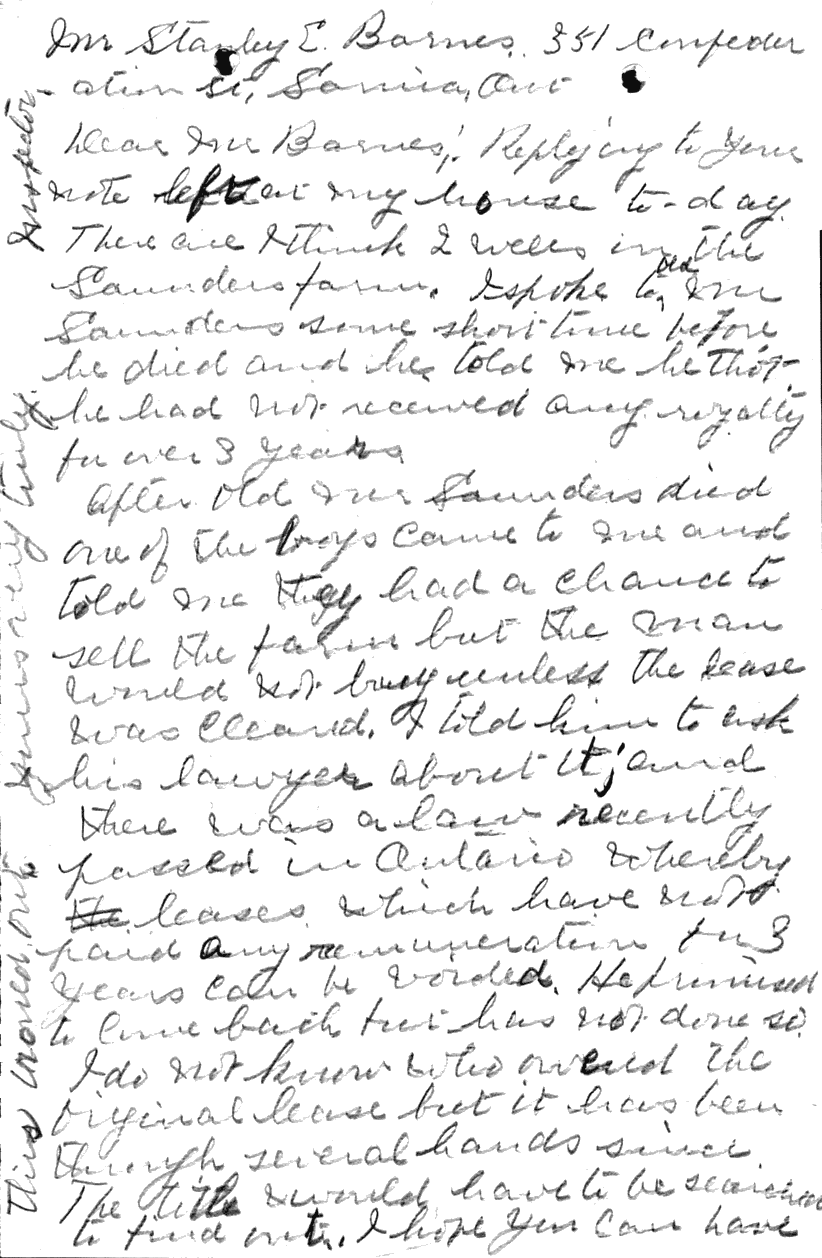 Mr Stanley E. Barnes. 351 Confeder
ation St, Sarnia, Ont
Dear Mr Barnes; Replying to your
note left at my house to-day.
There are I think 2 wells in the
Saunders farm. I spoke to old Mr
Saunders some short time before
he died and he told me he tho't
he had not received any royalty
for over 3 years
After old Mr Saunders died
one of the boys came to me and
told me they had a chance to
sell the farm but the man
would not buy unless the lease
was cleared. I told him to ask
his lawyer about it; and
there was a law recently
passed in Ontario whereby
the leases which have not
paid any remuneration for 3
years can be voided. He promised
to come back but has not done so.
I do not know who owned the
original lease but it has been
through several hands since
The title would have to be searched
to find out. I hope you can have
this worked out. Yours very truly. Inspector.